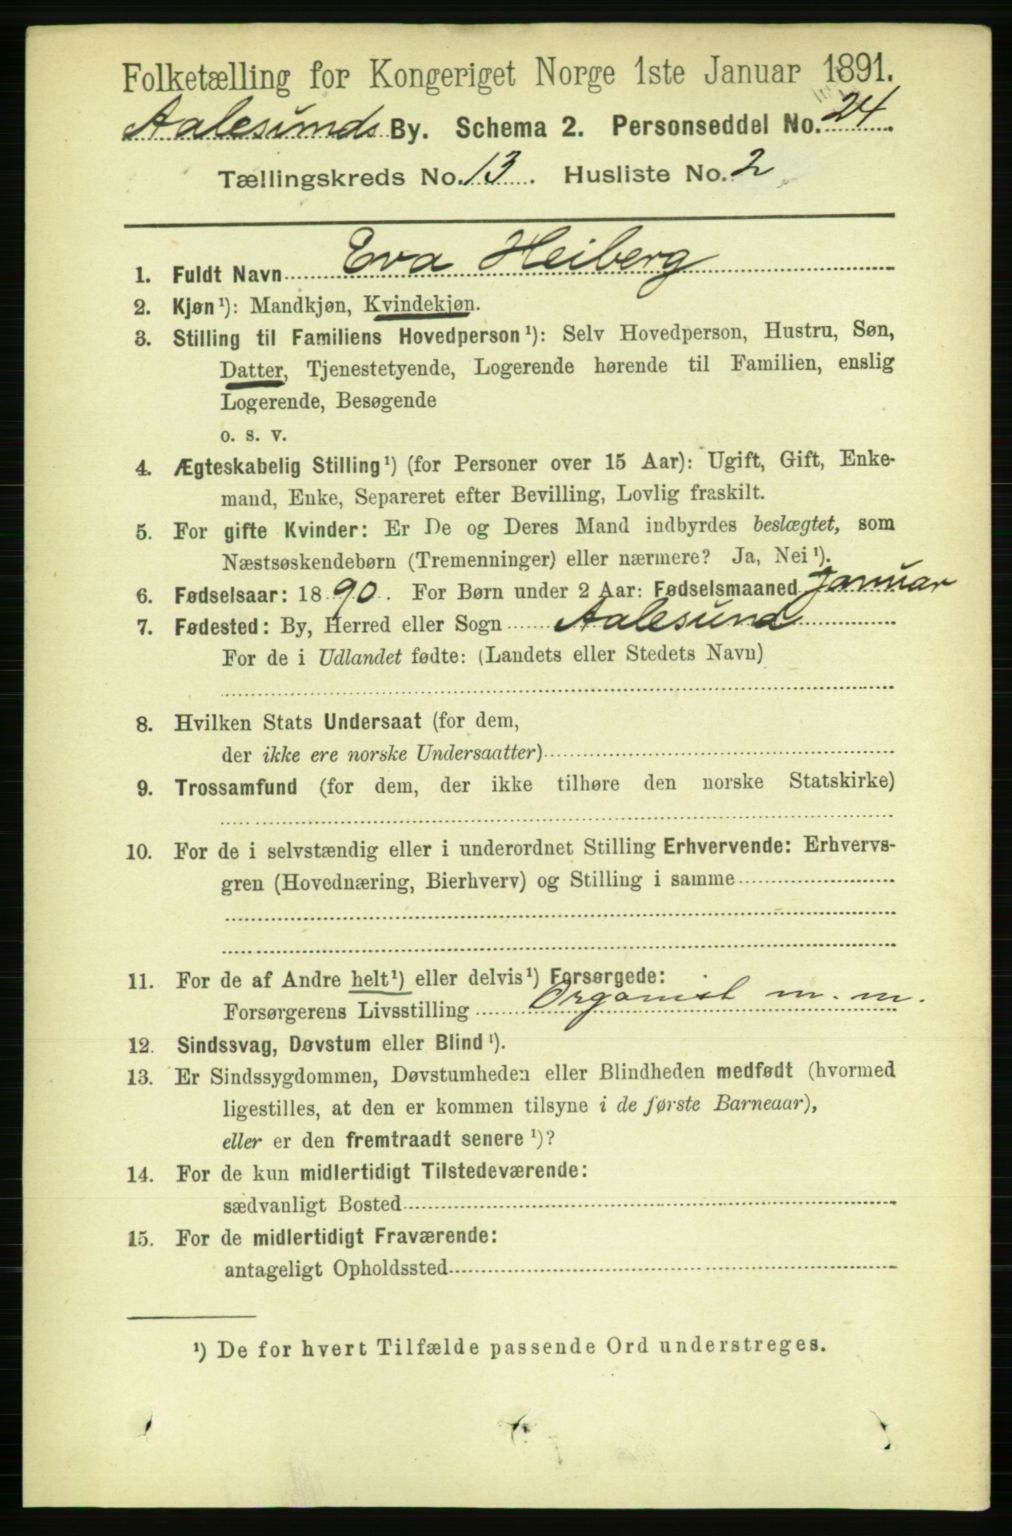 Folketælling for Kongeriget Norge 1ste Januar 1891.
Aalesunds By. Schema 2. Personseddel No. 24.
Tællingskreds No. 13. Husliste No. 2
1. Fuldt Navn Eva Heiberg
2. Kjøn¹): Mandkjøn, Kvindekjøn.
3. Stilling til Familiens Hovedperson¹): Selv Hovedperson, Hustru, Søn,
Datter, Tjenestetyende, Logerende hørende til Familien, enslig
Logerende, Besøgende
o. s. v.
4. Ægteskabelig Stilling¹) (for Personer over 15 Aar): Ugift, Gift, Enke-
mand, Enke, Separeret efter Bevilling, Lovlig fraskilt.
5. For gifte Kvinder: Er De og Deres Mand indbyrdes beslægtet, som
Næstsøskendebørn (Tremenninger) eller nærmere? Ja, Nei¹).
6. Fødselsaar: 1890. For Børn under 2 Aar: Fødselsmaaned Januar
7. Fødested: By, Herred eller Sogn Aalesund
For de i Udlandet fødte: (Landets eller Stedets Navn)
8. Hvilken Stats Undersaat (for dem,
der ikke ere norske Undersaatter)
9. Trossamfund (for dem, der ikke tilhøre den norske Statskirke)
10. For de i selvstændig eller i underordnet Stilling Erhvervende: Erhvervs-
gren (Hovednæring, Bierhverv) og Stilling i samme
11. For de af Andre helt¹) eller delvis¹) Forsørgede:
Forsørgerens Livsstilling Organist m. m.
12. Sindssvag, Døvstum eller Blind¹).
13. Er Sindssygdommen, Døvstumheden eller Blindheden medfødt (hvormed
ligestilles, at den er kommen tilsyne i de første Barneaar),
eller er den fremtraadt senere¹)?
14. For de kun midlertidigt Tilstedeværende:
sædvanligt Bosted
15. For de midlertidigt Fraværende:
antageligt Opholdssted
¹) De for hvert Tilfælde passende Ord understreges.